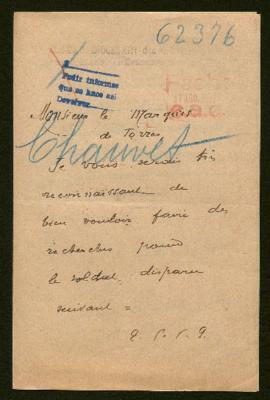 62376
Pedir informes
que se hace así
Devolver
Monsieur le Marquis
de Torres
Chauvet
Je vous serais très
reconnaissant de
bien vouloir faire des
recherches pour
le soldat disparu
suivant =